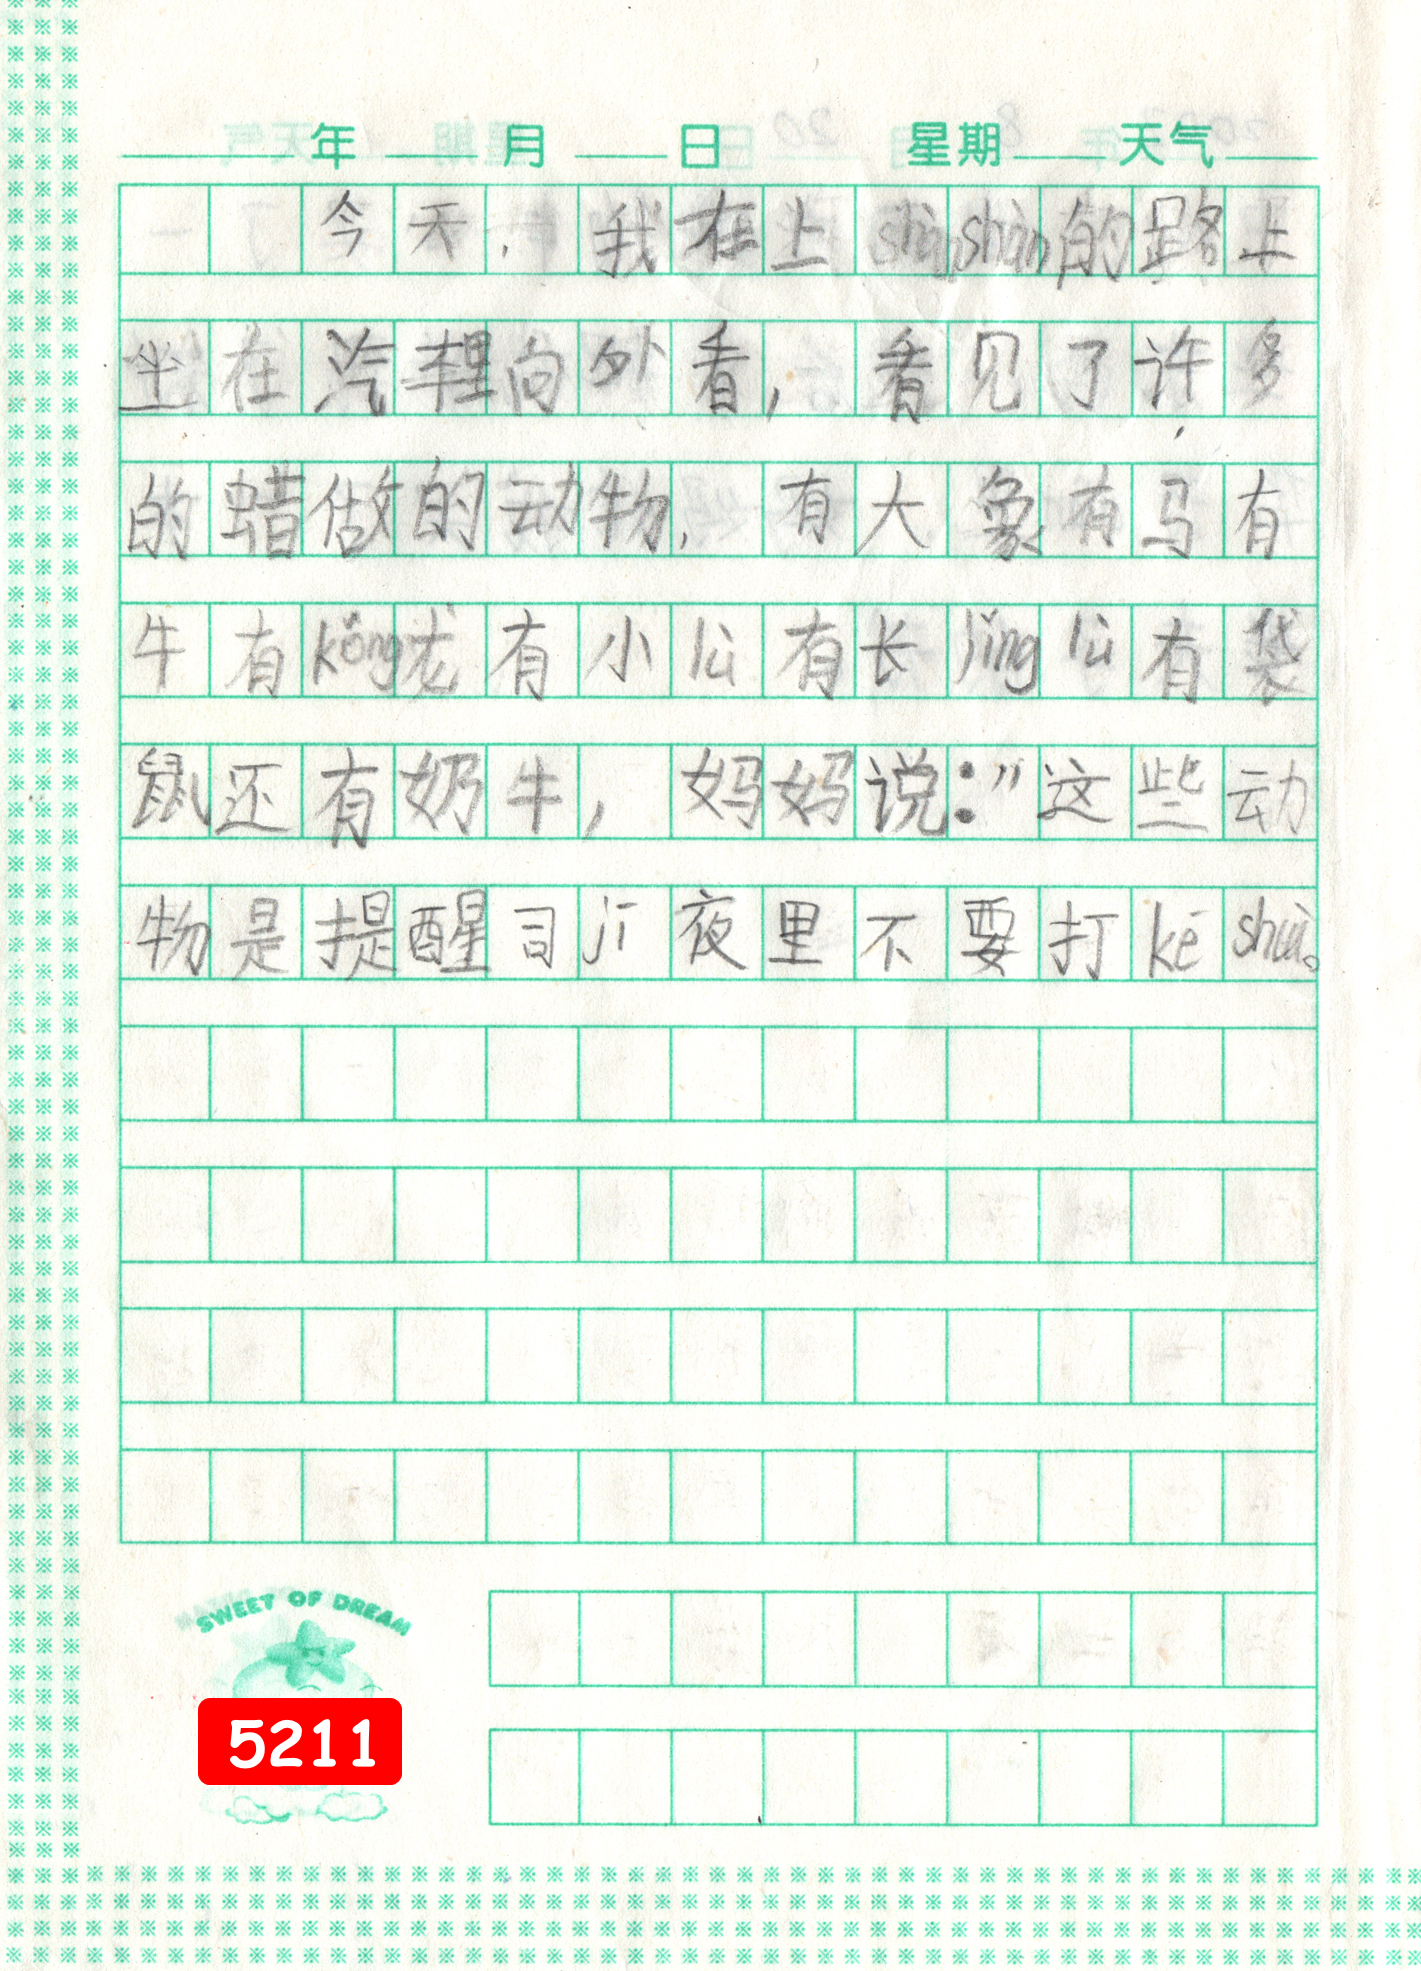 年 月 日 星期 天气
今天，我在上shùnshàn的路上
坐在汽车里向外看，看见了许多
的蜡做的动物，有大象、有马有
牛有kǒng龙有小lù有长jǐng lù有袋
鼠还有奶牛，妈妈说："这些动
物是提醒司jī夜里不要打kē
shuì。
SWEET OF DREAM
5211